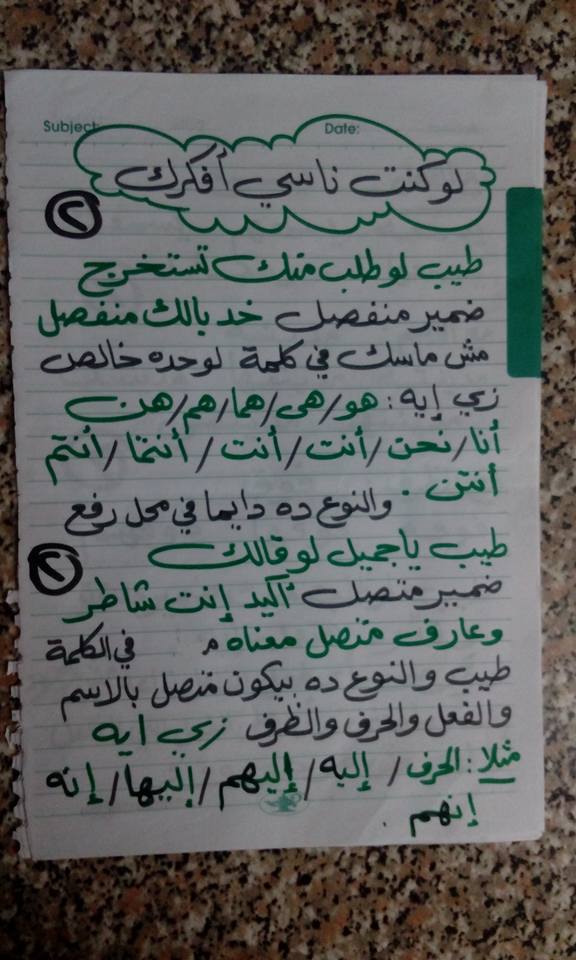 Subject:
Date:
لو كنت ناسي أفكرك
٢
طيب لو طلب منك تستخرج
ضمير منفصل خد بالك منفصل
مش ماسك في كلمة لوحده خالص
زي إيه : هو/هى/هما/هم/هن
أنا/نحن/أنت/أنت/أنتما/أنتم
أنتن . والنوع ده دايما في محل رفع
طيب ياجميل لو قالك
٢
ضمير متصل أكيد إنت شاطر
وعارف متصل معناه في الكلمة
طيب والنوع ده بيكون متصل بالاسم
والفعل والحرف والظرف زي ايه
مثلا : الحرف / إليه / إليهم / إليها / إنه
إنهم .